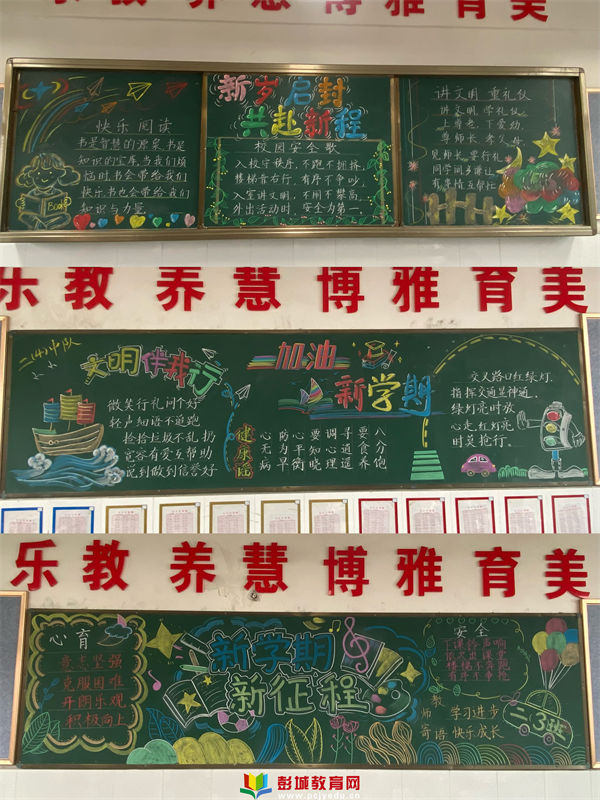 乐教 养慧 博雅 育美
快乐阅读
书是智慧的源泉,书是
知识的宝库,当我们烦
恼时书会带给我们
快乐书也会带给我们
知识与力量
BOOK
新岁启封
共赴新程
校园安全歌
入校守秩序,不跑不拥挤,
楼梯靠右行,有序不争吵,
入室讲文明,不闹不攀高,
外出活动时,安全为第一
讲文明 重礼仪
讲文明 学礼仪
上尊老 下爱幼
尊师长 孝父母
见师长 要行礼
同学间 多谦让
有事情 互帮忙
乐教 养慧 博雅 育美
二(4)中队
文明伴我行
微笑行礼问个好
轻声细语不追跑
捡捡垃圾不乱扔
宽容有爱互帮助
说到做到信誉好
加油
新学期
健康谣
心防心要调寻要八
无为平知心通食分
病早衡晓理道养饱
交叉路口红绿灯.
指挥交通显神通.
绿灯亮时放
心走,红灯亮
时莫抢行.
乐教 养慧 博雅 育美
心育
意志坚强
克服困难
开朗乐观
积极向上
新学期
新征程
安全
下课铃声响
依次出教室
楼梯不奔跑
有序不争抢
教
师
寄语
学习进步
快乐成长
二·3班
彭城教育网
www.pcjyedu.cn